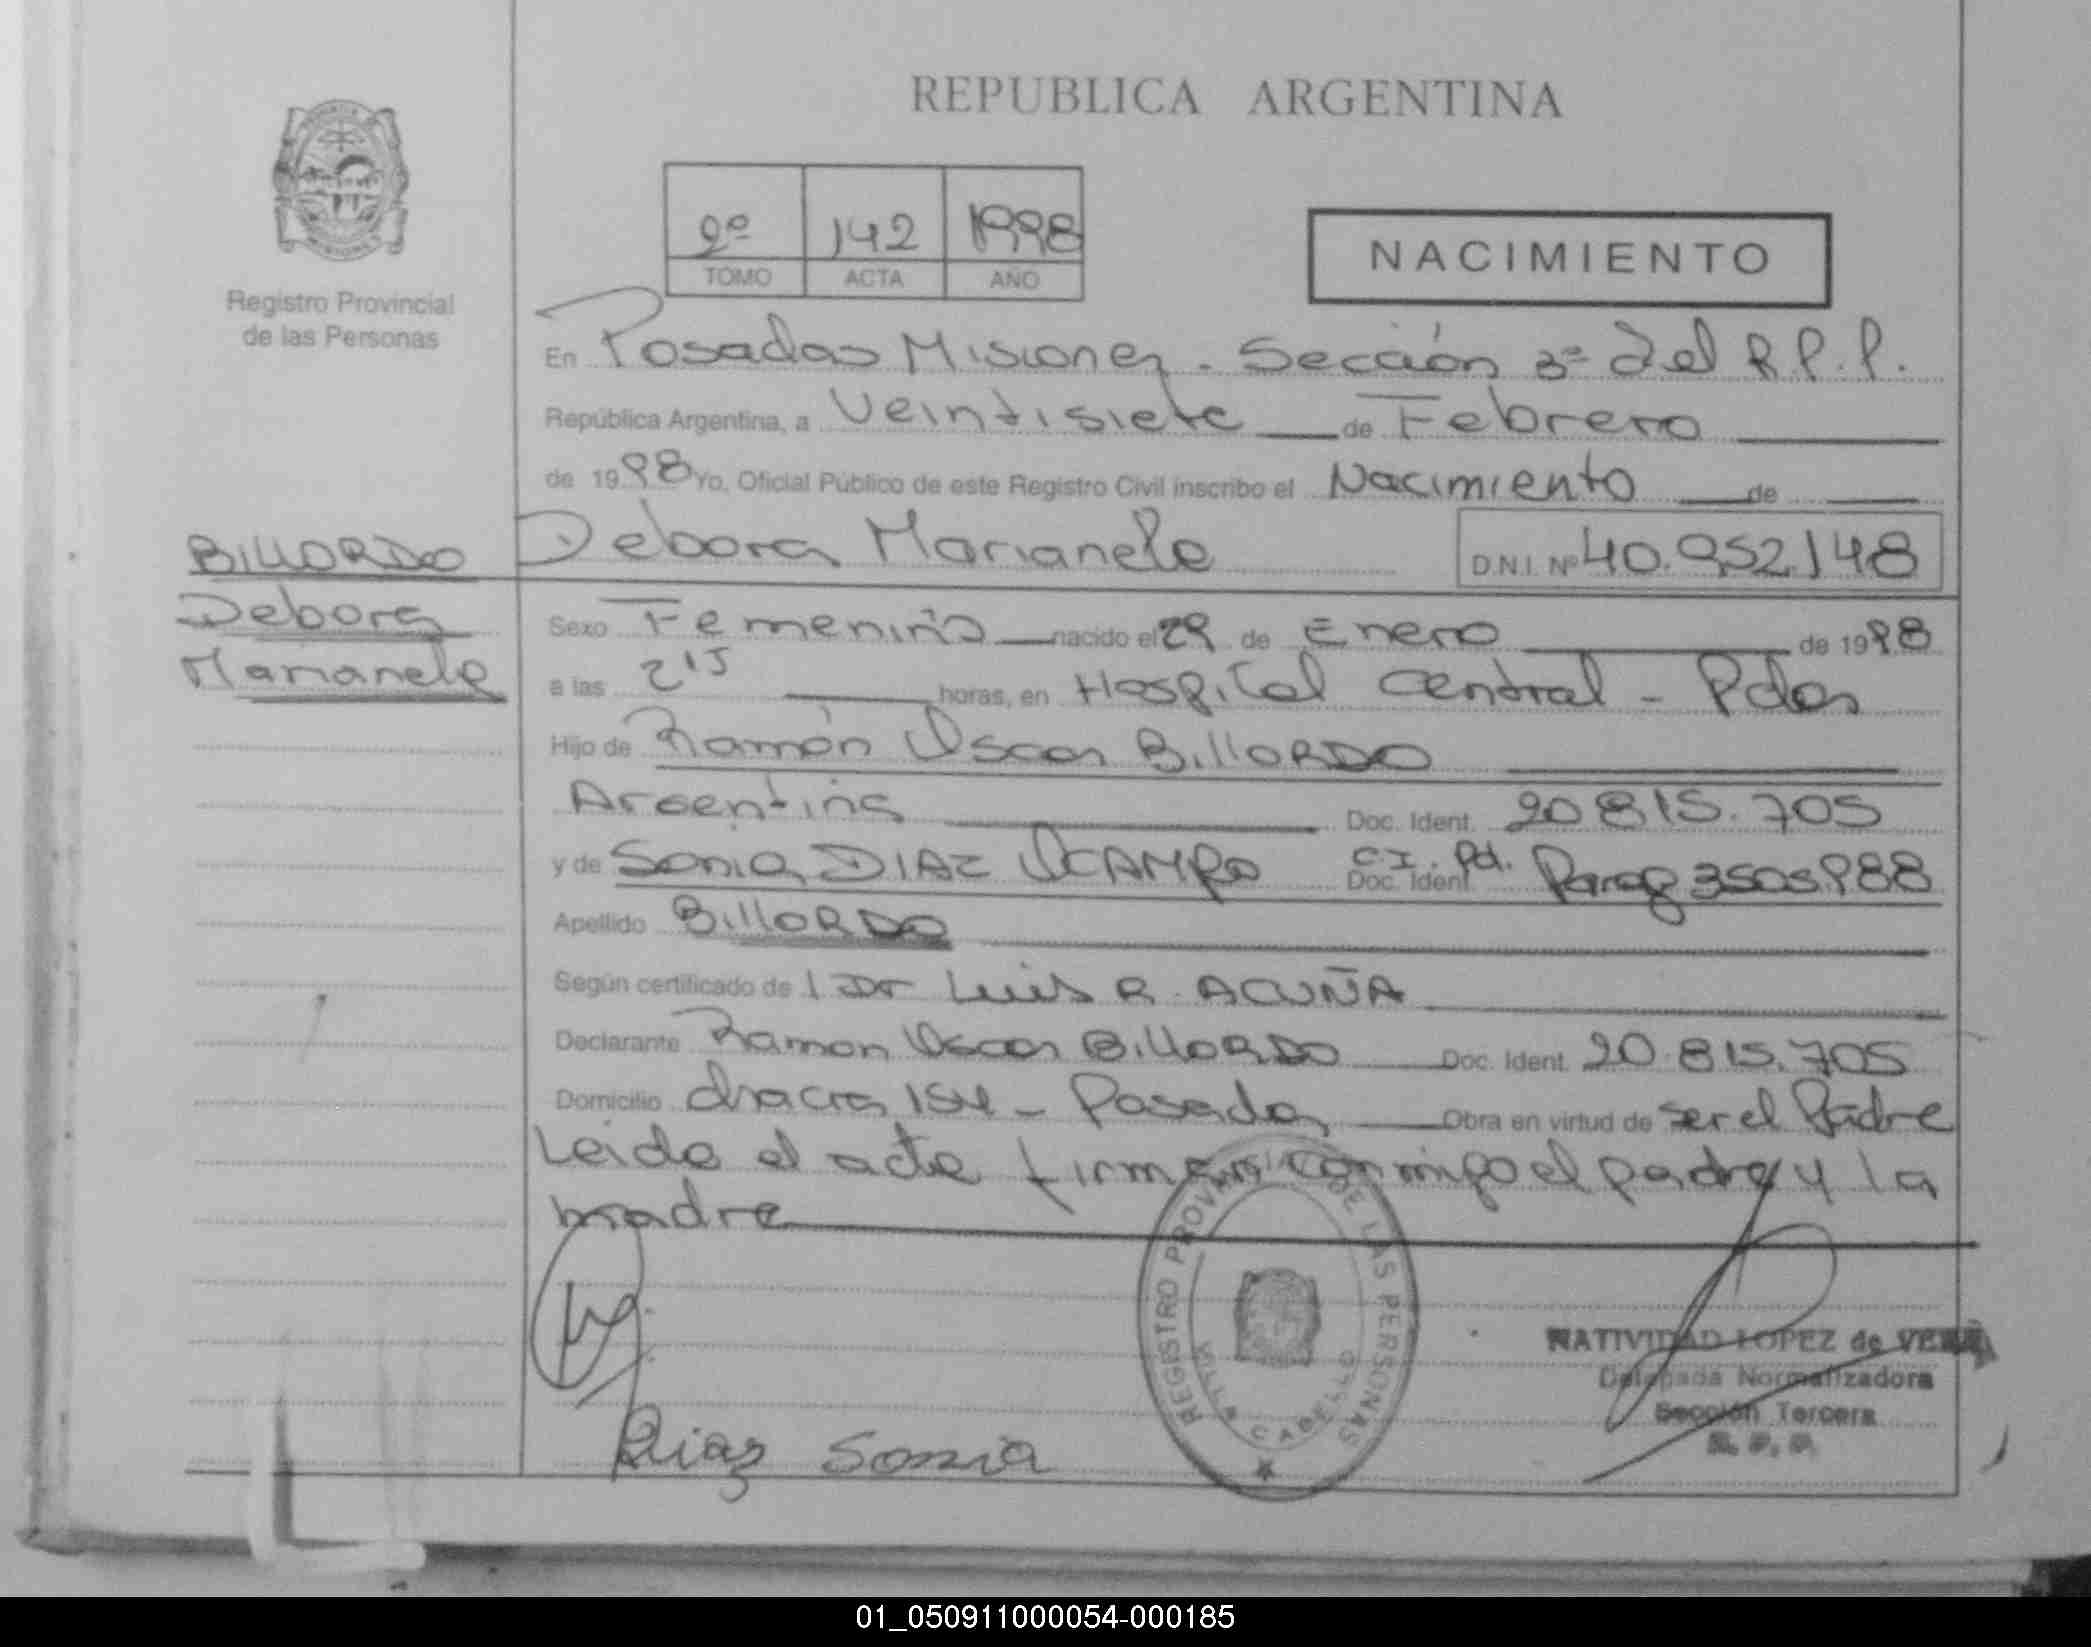 REPUBLICA ARGENTINA
Registro Provincial
de las Personas
2º 142 1998
TOMO ACTA AÑO
NACIMIENTO
En Posadas Misiones - Sección 3ª del R.P.P.
República Argentina, a Veintisiete de Febrero
de 1998 Yo, Oficial Público de este Registro Civil inscribo el Nacimiento de
Debora Marianela D.N.I. Nº 40.952.148
BILLORDO
Debora
Marianela
Sexo Femenino nacido el 29 de Enero de 1998
a las 2 15 horas, en Hospital Central - Pdas
Hijo de Ramón Oscar BillORDO
Argentina Doc. Ident. 20 815.705
y de Sonia DIAZ OCAMPO C.I. Pol. Doc. Ident. Parag 3505988
Apellido BillORDO
Según certificado de l Dr Luis R. ACUÑA
Declarante Ramon Oscar BillORDO Doc. Ident. 20.815.705
Domicilio chacra 154 - Posadas Obra en virtud de ser el Padre
Leida el acta firman conmigo el padre y la
madre
REGISTRO PROVINCIAL DE LAS PERSONAS
CABELLO
NATIVIDAD LOPEZ de VERA
Delegada Normalizadora
Sección Tercera
R. P. P.
Diaz Sonia
01_050911000054-000185